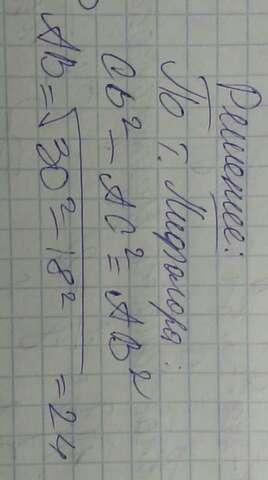 Решение:
По т. Пифагора:
CB² - AC² = AB²
AB = √30² - 18² = 24